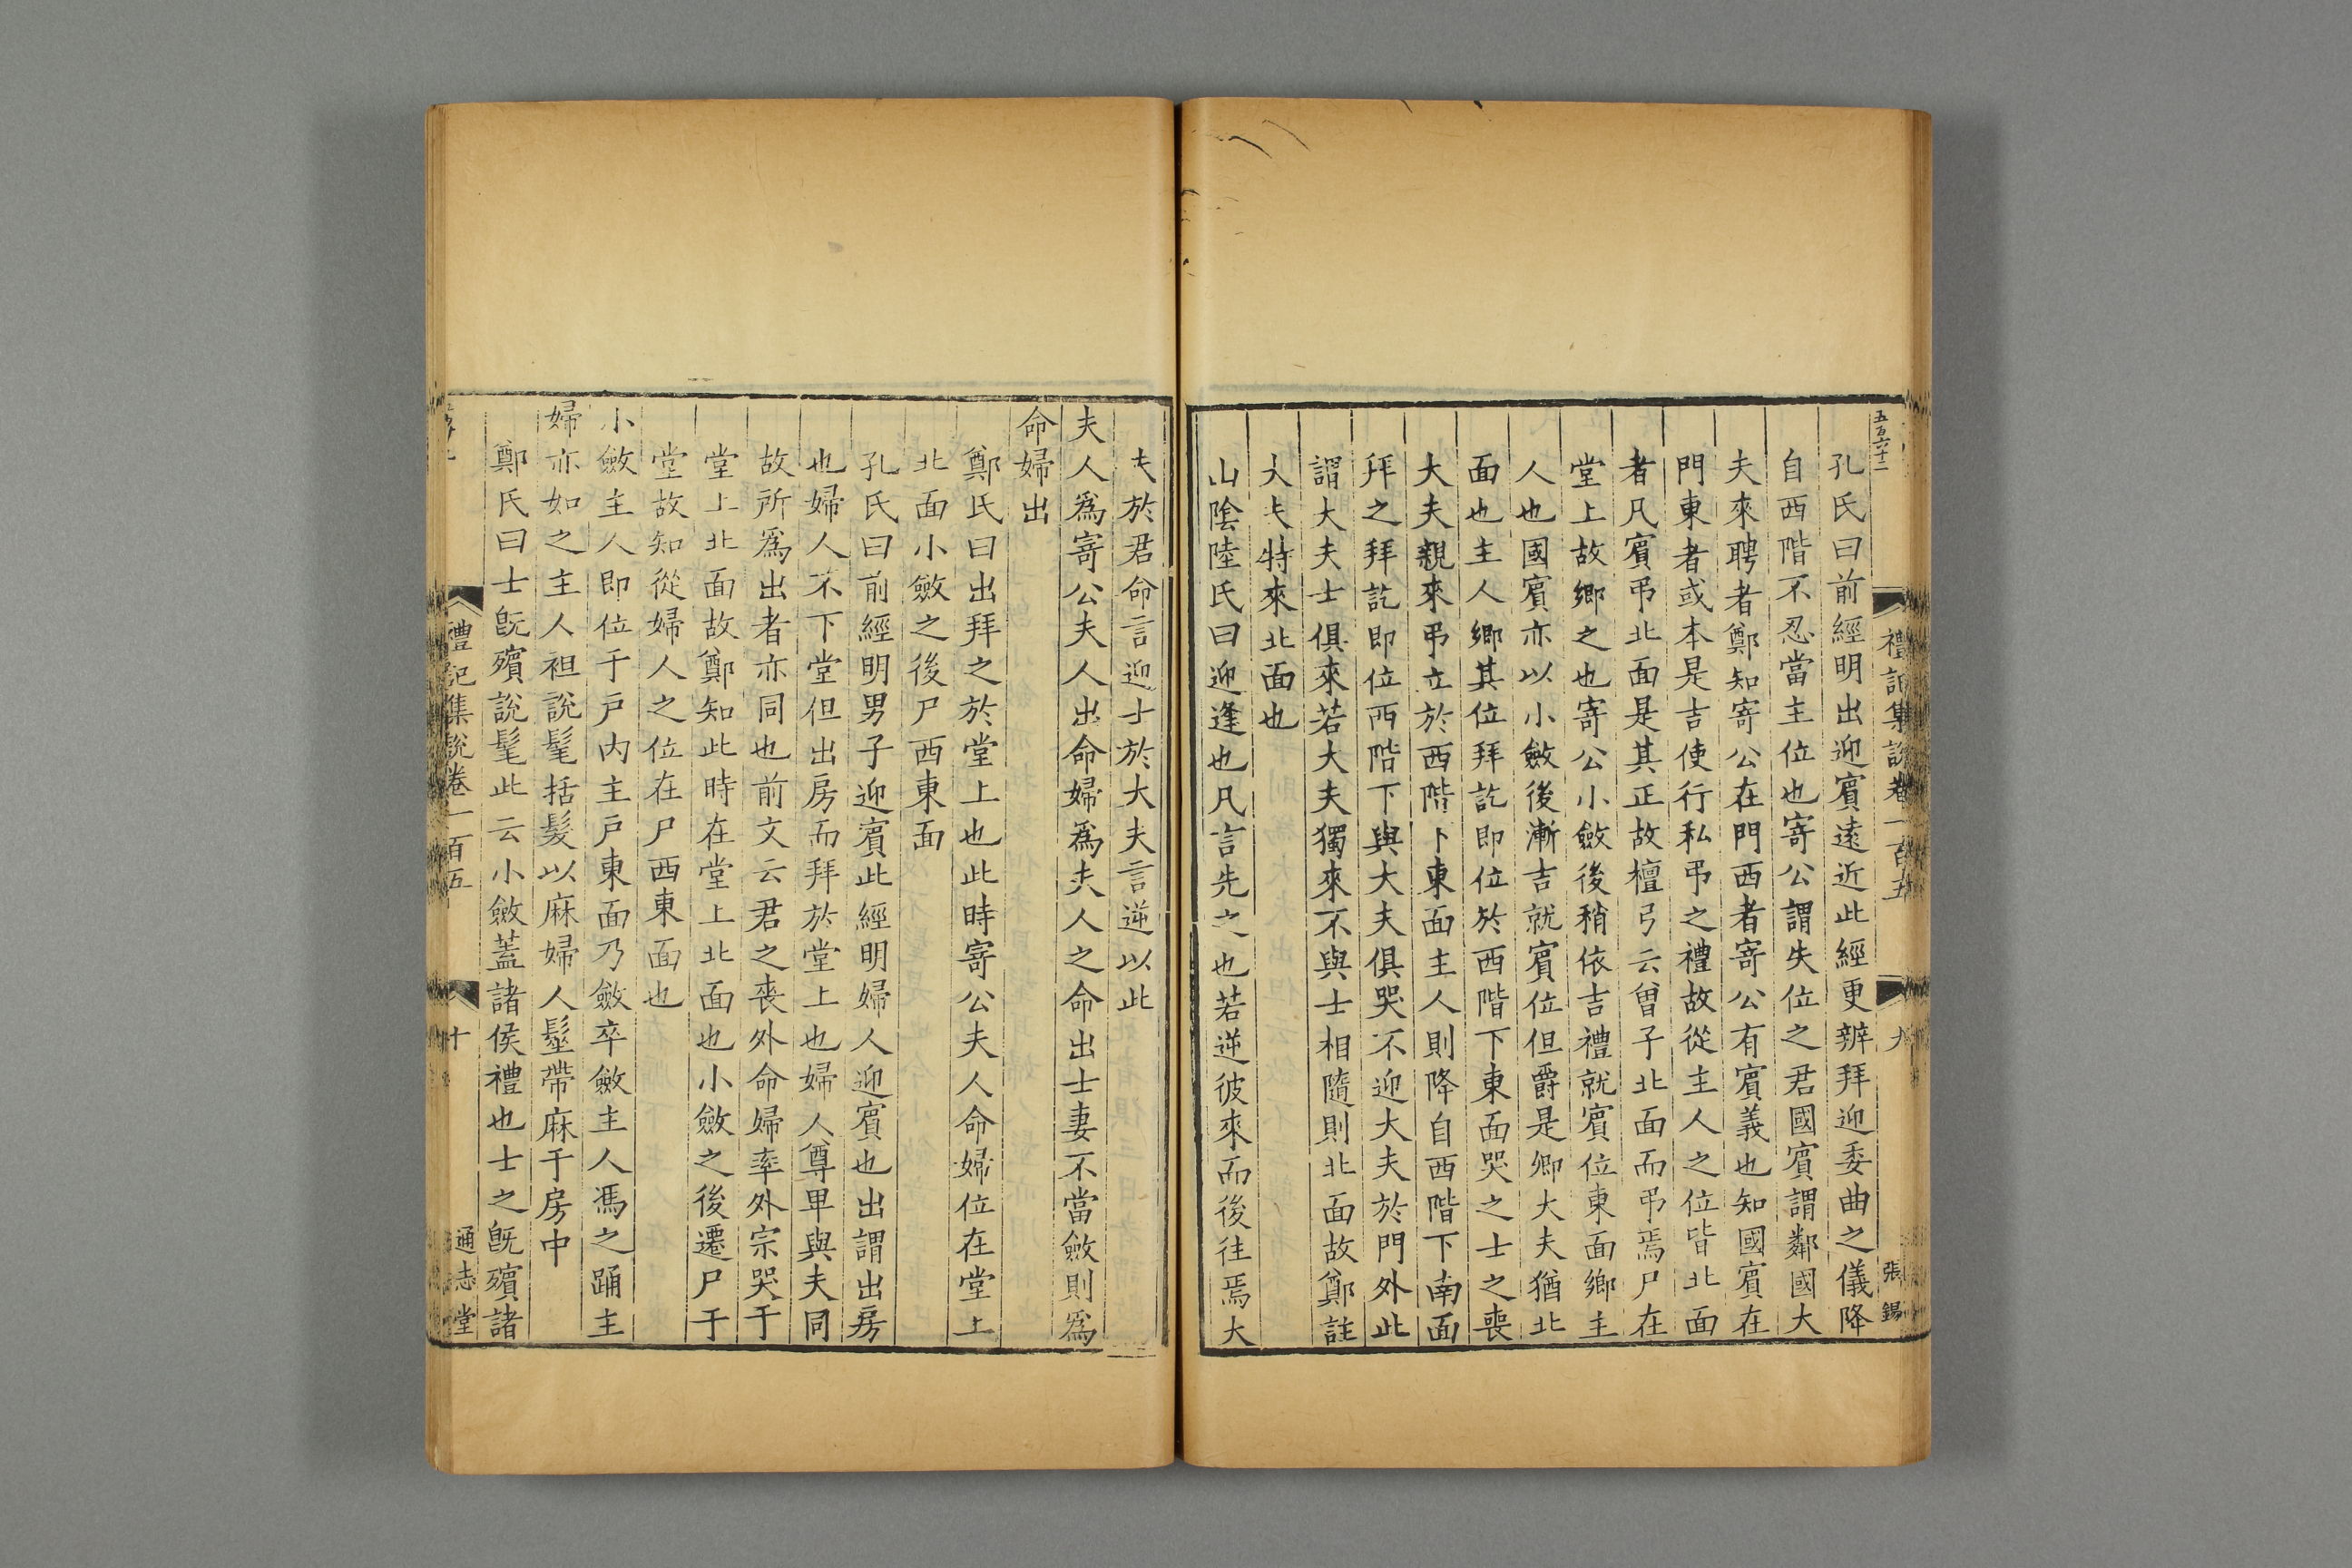 五百六十二
禮記集說卷一百五
九
張錫
孔氏曰前經明出迎賓遠近此經更辨拜迎委曲之儀降
自西階不忍當主位也寄公謂失位之君國賓謂鄰國大
夫來聘者鄭知寄公在門西者寄公有賓義也知國賓在
門東者或本是吉使行私弔之禮故從主人之位皆北面
者凡賓弔北面是其正故檀弓云曾子北面而弔焉尸在
堂上故鄉之也寄公小斂後稍依吉禮就賓位東面鄉主
人也國賓亦以小斂後漸吉就賓位但爵是卿大夫猶北
面也主人鄉其位拜訖即位於西階下東面哭之士之喪
大夫親來弔立於西階下東面主人則降自西階下南面
拜之拜訖即位西階下與大夫俱哭不迎大夫於門外此
謂大夫士俱來若大夫獨來不與士相隨則北面故鄭註
大夫特來北面也
山陰陸氏曰迎逢也凡言先之也若逆彼來而後往焉大
夫於君命言迎士於大夫言逆以此
夫人爲寄公夫人出命婦爲夫人之命出士妻不當斂則爲
命婦出
鄭氏曰出拜之於堂上也此時寄公夫人命婦位在堂上
北面小斂之後尸西東面
孔氏曰前經明男子迎賓此經明婦人迎賓也出謂出房
也婦人不下堂但出房而拜於堂上也婦人尊卑與夫同
故所爲出者亦同也前文云君之喪外命婦率外宗哭于
堂上北面故鄭知此時在堂上北面也小斂之後遷尸于
堂故知從婦人之位在尸西東面也
小斂主人即位于戶內主戶東面乃斂卒斂主人馮之踊主
婦亦如之主人袒說髦括髮以麻婦人髽帶麻于房中
鄭氏曰士旣殯說髦此云小斂蓋諸侯禮也士之旣殯諸
禮記集說卷一百五
十
通志堂